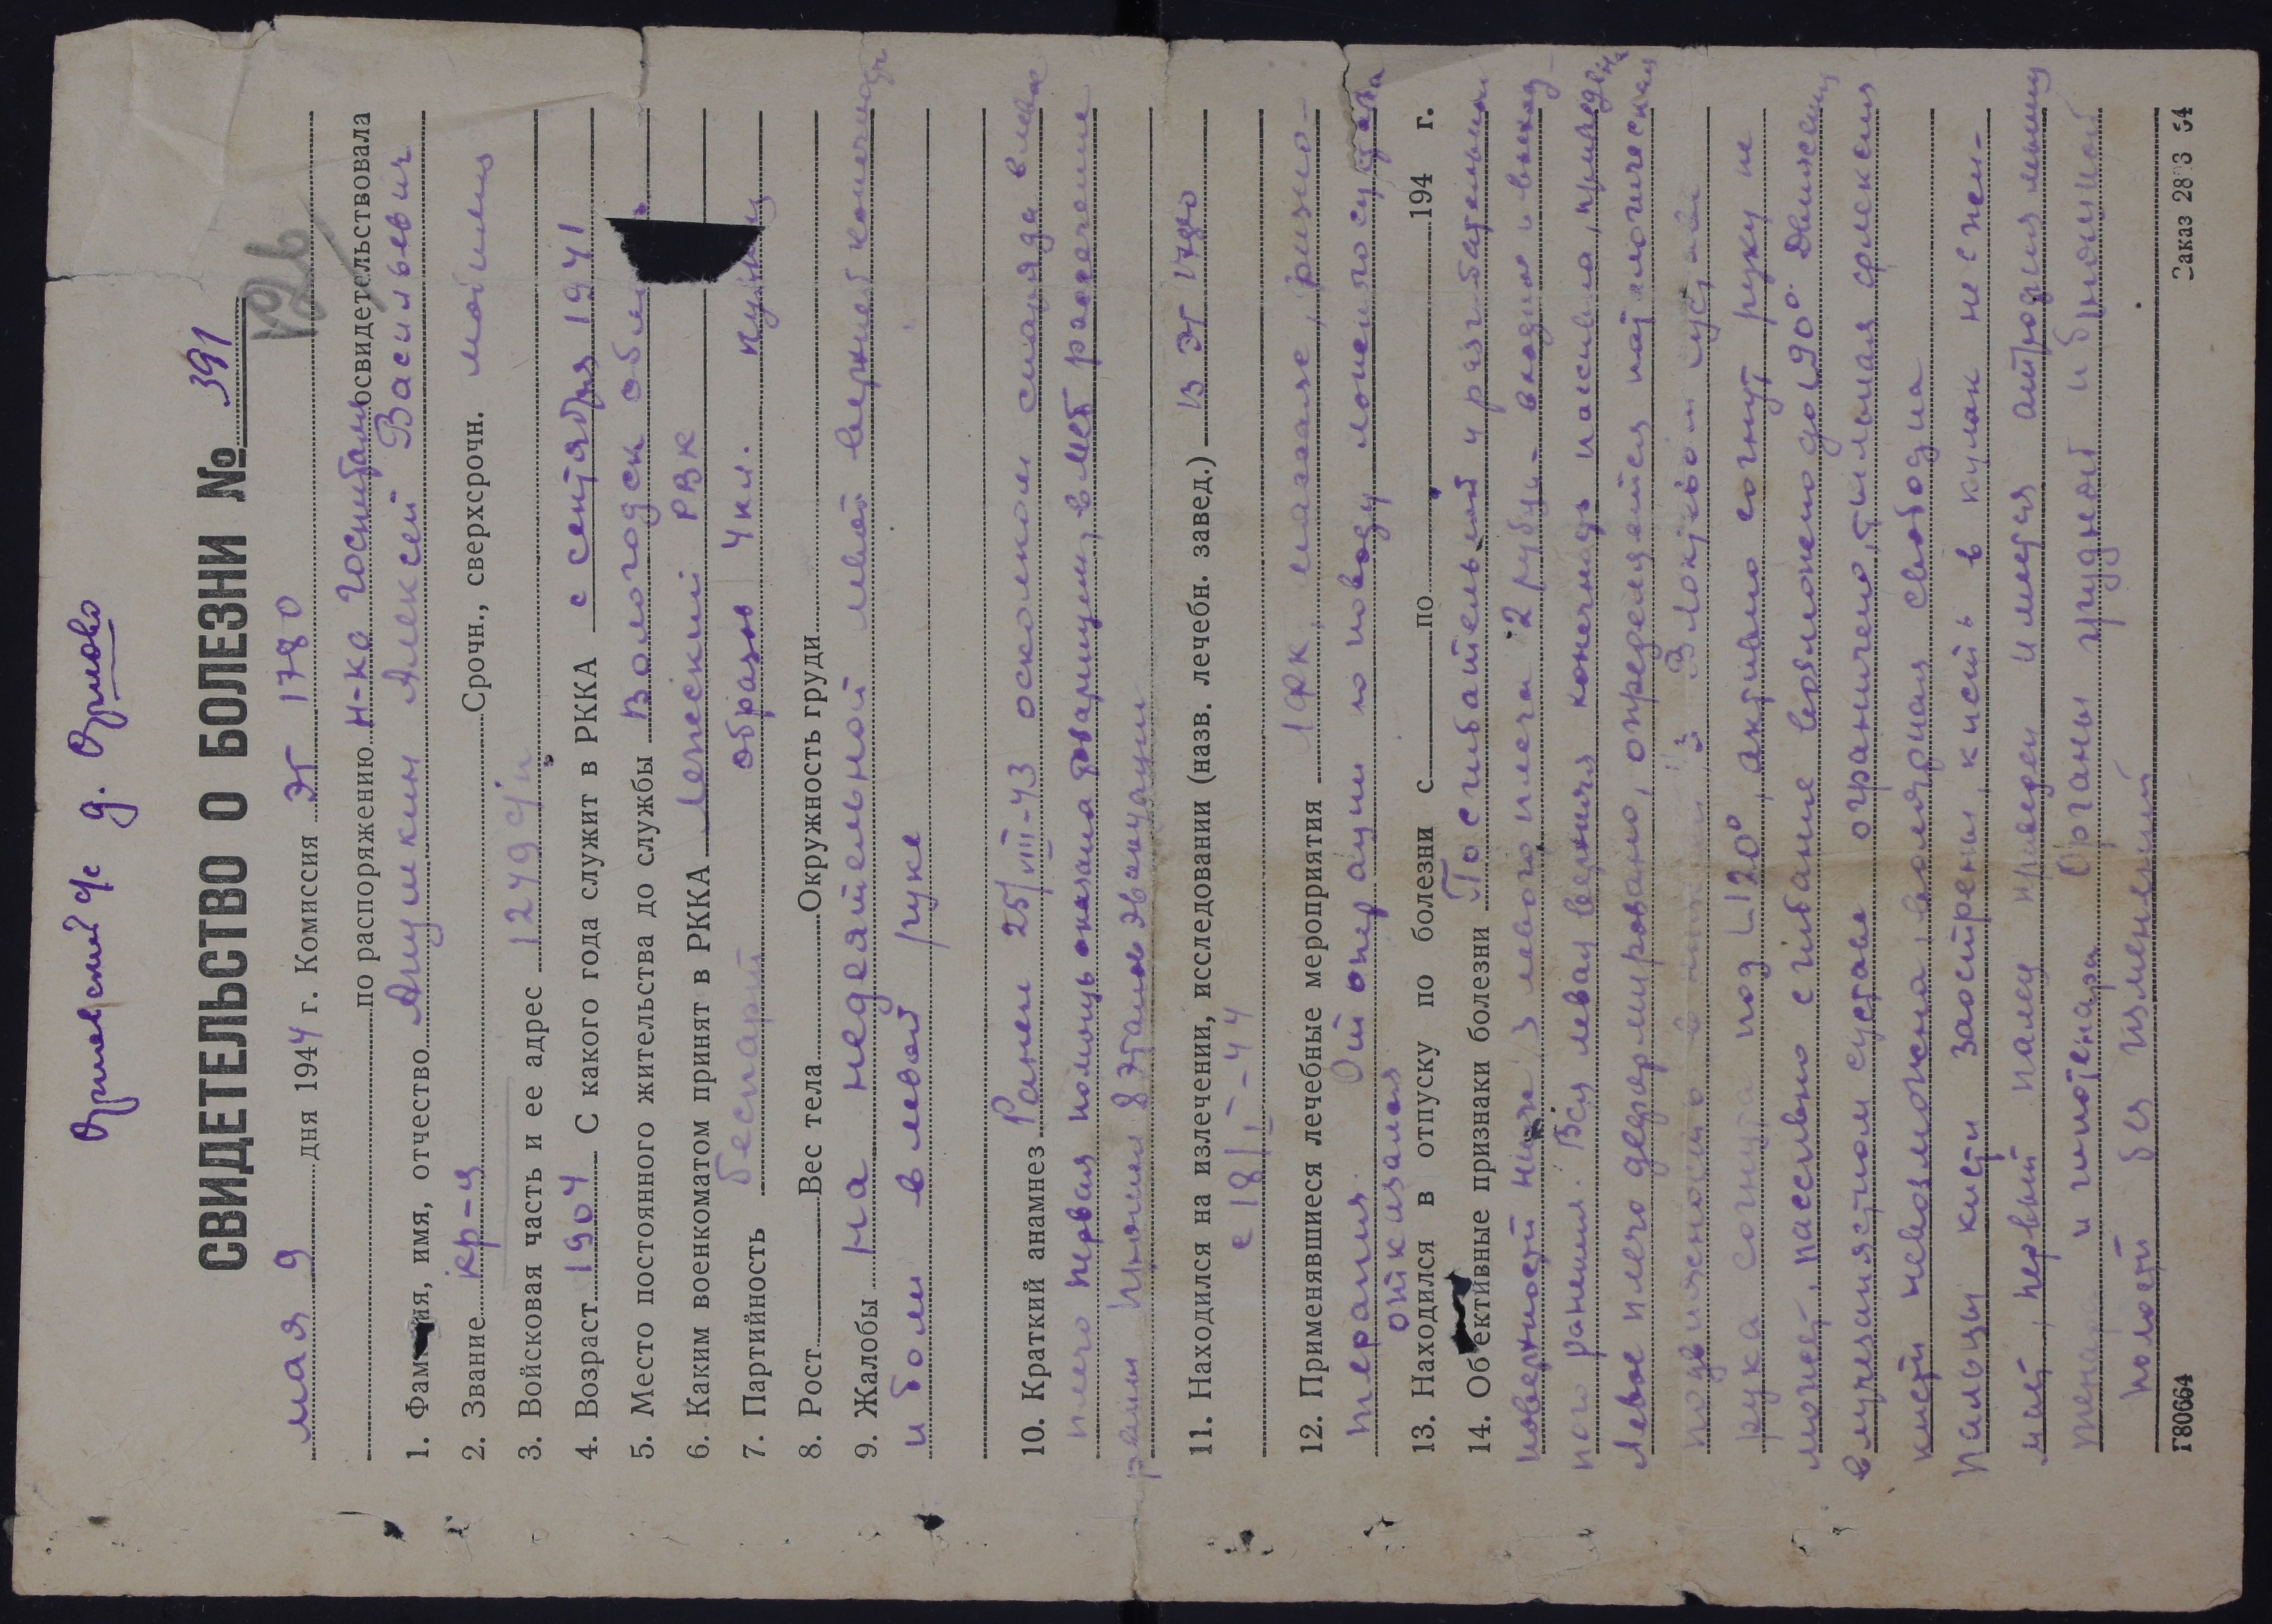 Юршевский с/с д. Юрново
СВИДЕТЕЛЬСТВО О БОЛЕЗНИ № 391
мая 9 дня 1944 г. Комиссия ЭГ 1780
по распоряжению н-ка госпиталя освидетельствовала
1. Фамилия, имя, отчество Алексей Васильевич
2. Звание кр-ц Срочн., сверхсрочн.
3. Войсковая часть и ее адрес 1249 с/п
4. Возраст 1904 С какого года служит в РККА с сентября 1941
5. Место постоянного жительства до службы Вологодск обл
6. Каким военкоматом принят в РККА РВК
7. Партийность беспарт образов 4 кл.
8. Рост Вес тела Окружность груди
9. Жалобы На недеятельной левой верхней конечности
и боли в левой руке
10. Краткий анамнез Ранен 25/VIII-43 осколком снаряда в левое
плечо первая помощь оказана товарищем, в МСБ рассечение
раны Прошел 8 этапов эвакуации
11. Находился на излечении, исследовании (назв. лечебн. завед.) В ЭГ 1780
с 18/I-44
12. Применявшиеся лечебные мероприятия ЛФК, массаж, физио-
терапия. От операции по поводу ложного сустава
отказался
13. Находился в отпуску по болезни с по 194 г.
14. Об'ективные признаки болезни По сгибательной и разгибательной
поверхности левого плеча 2 рубца - входной и выход-
ного ранения. Вся левая верхняя конечность пассивна,
Левое плечо деформировано, определяется патологическая
подвижность В локтевом суставе
рука согнута под ∟120°, активно согнуть руку не
может, пассивно сгибание возможно до ∟90°. Движения
в лучезапястном суставе ограничено, тыльная флексия
кисти невозможна, волярная свободна
Пальцы кисти заострены, кисть в кулак не сжи-
мает, первый палец приведен Имеется атрофия мышц
тенара и гипотенара Органы грудной и брюшной
полости без изменений
Г80664 Заказ 2833 54